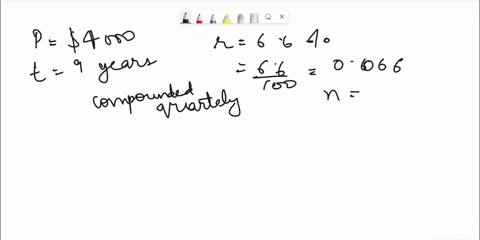 P = $4000
t = 9 years
compounded quartely
r = 6.6 %
= 6.6/100 = 0.066
n =